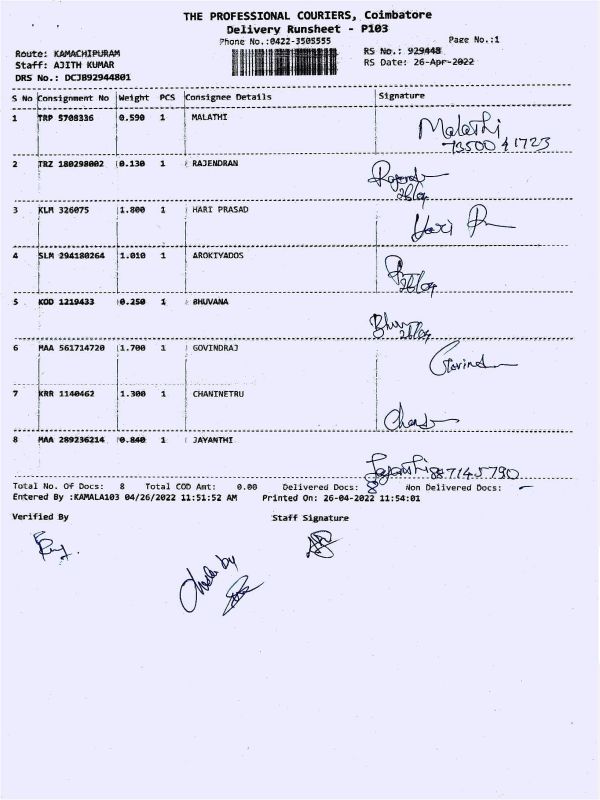 THE PROFESSIONAL COURIERS, Coimbatore
Delivery Runsheet - P103
Phone No.:0422-3505555 Page No.:1
Route: KAMACHIPURAM RS No.: 929448
Staff: AJITH KUMAR RS Date: 26-Apr-2022
DRS No.: DCJ892944801
S No Consignment No Weight PCS Consignee Details Signature
1 TRP 5708336 0.590 1 MALATHI Malathi
2 TRZ 180298002 0.130 1 RAJENDRAN
26/04
3 KLM 326075 1.800 1 HARI PRASAD Hari
4 SLM 294180264 1.010 1 AROKIYADOS
26/04
5 KOD 1219433 0.250 1 BHUVANA
26/04
6 MAA 561714720 1.700 1 GOVINDRAJ
7 KRR 1140462 1.300 1 CHANINETRU
8 MAA 289236214 0.840 1 JAYANTHI
Total No. Of Docs: 8 Total COD Amt: 0.00 Delivered Docs: 8 Non Delivered Docs: -
Entered By :KAMALA103 04/26/2022 11:51:52 AM Printed On: 26-04-2022 11:54:01
Verified By Staff Signature